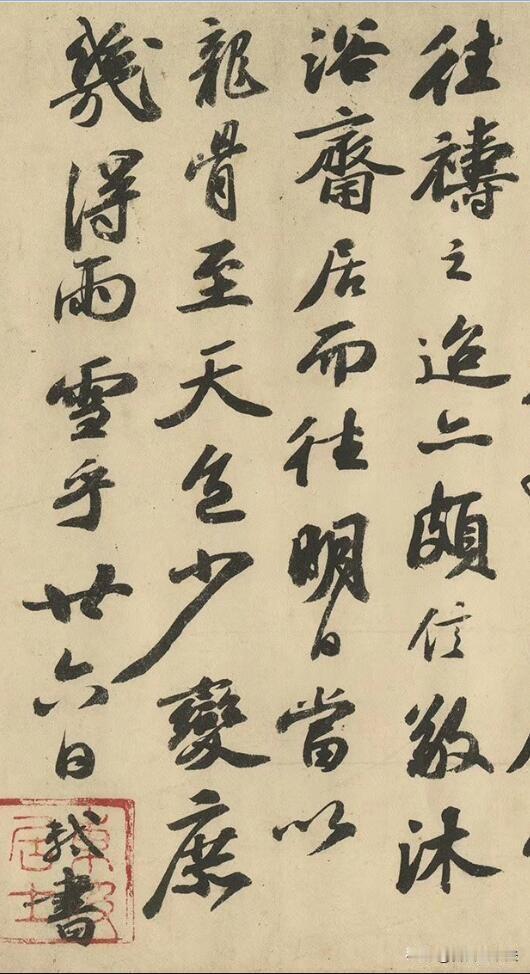 往禱之迨亦頗信敬沐
浴齋居而往明日當以
龍骨至天色少變庶
幾得雨雪乎廿六日軾書
東坡居士